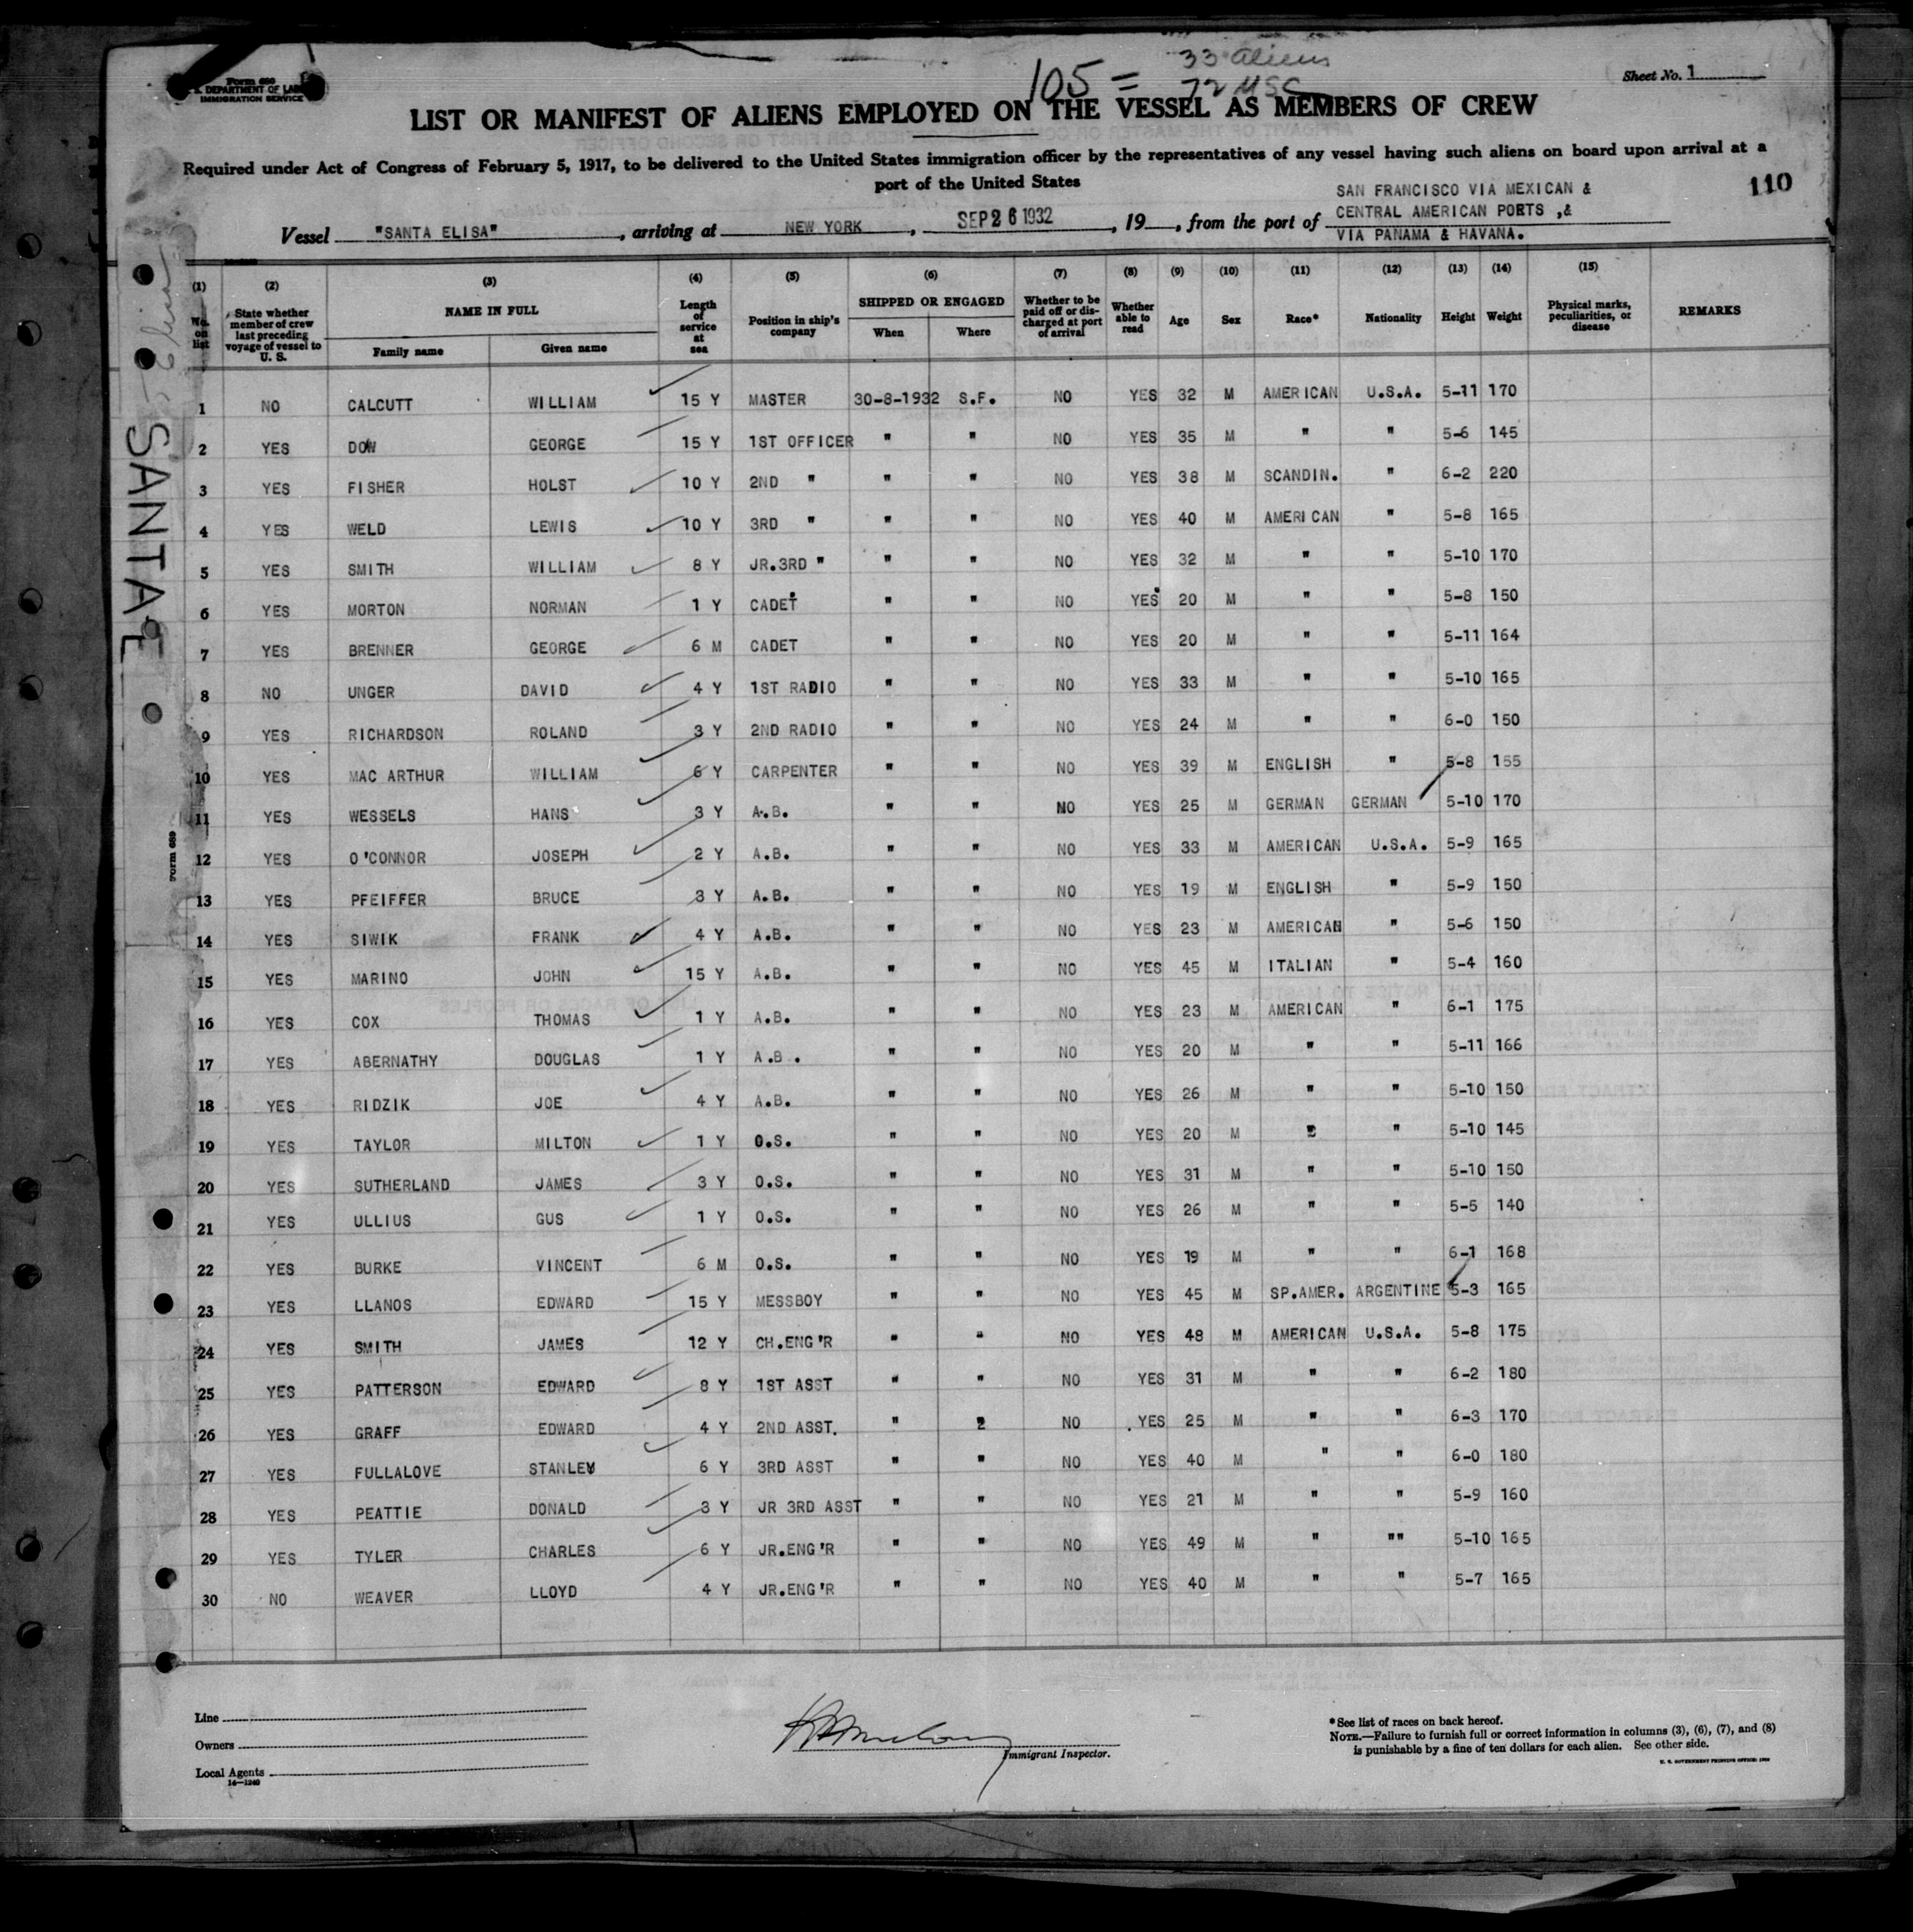 105 = 33 aliens
72 USC
Form 689
U. S. DEPARTMENT OF LABOR
IMMIGRATION SERVICE
Sheet No. 1
LIST OR MANIFEST OF ALIENS EMPLOYED ON THE VESSEL AS MEMBERS OF CREW
Required under Act of Congress of February 5, 1917, to be delivered to the United States immigration officer by the representatives of any vessel having such aliens on board upon arrival at a
port of the United States
110
SAN FRANCISCO VIA MEXICAN &
CENTRAL AMERICAN PORTS ,&
VIA PANAMA & HAVANA.
Vessel "SANTA ELISA", arriving at NEW YORK, SEP 26 1932, 19, from the port of
(1) (2) (3) (4) (5) (6) (7) (8) (9) (10) (11) (12) (13) (14) (15)
No. on list State whether member of crew last preceding voyage of vessel to U. S. NAME IN FULL Family name Given name Length of service at sea Position in ship's company SHIPPED OR ENGAGED When Where Whether to be paid off or discharged at port of arrival Whether able to read Age Sex Race* Nationality Height Weight Physical marks, peculiarities, or disease REMARKS
1 NO CALCUTT WILLIAM 15 Y MASTER 30-8-1932 S.F. NO YES 32 M AMERICAN U.S.A. 5-11 170
2 YES DOW GEORGE 15 Y 1ST OFFICER " " NO YES 35 M " " 5-6 145
3 YES FISHER HOLST 10 Y 2ND " " " NO YES 38 M SCANDIN. " 6-2 220
4 YES WELD LEWIS 10 Y 3RD " " " NO YES 40 M AMERICAN " 5-8 165
5 YES SMITH WILLIAM 8 Y JR.3RD " " " NO YES 32 M " " 5-10 170
6 YES MORTON NORMAN 1 Y CADET " " NO YES 20 M " " 5-8 150
7 YES BRENNER GEORGE 6 M CADET " " NO YES 20 M " " 5-11 164
8 NO UNGER DAVID 4 Y 1ST RADIO " " NO YES 33 M " " 5-10 165
9 YES RICHARDSON ROLAND 3 Y 2ND RADIO " " NO YES 24 M " " 6-0 150
10 YES MAC ARTHUR WILLIAM 6 Y CARPENTER " " NO YES 39 M ENGLISH " 5-8 155
11 YES WESSELS HANS 3 Y A.B. " " NO YES 25 M GERMAN GERMAN 5-10 170
12 YES O'CONNOR JOSEPH 2 Y A.B. " " NO YES 33 M AMERICAN U.S.A. 5-9 165
13 YES PFEIFFER BRUCE 3 Y A.B. " " NO YES 19 M ENGLISH " 5-9 150
14 YES SIWIK FRANK 4 Y A.B. " " NO YES 23 M AMERICAN " 5-6 150
15 YES MARINO JOHN 15 Y A.B. " " NO YES 45 M ITALIAN " 5-4 160
16 YES COX THOMAS 1 Y A.B. " " NO YES 23 M AMERICAN " 6-1 175
17 YES ABERNATHY DOUGLAS 1 Y A.B. " " NO YES 20 M " " 5-11 166
18 YES RIDZIK JOE 4 Y A.B. " " NO YES 26 M " " 5-10 150
19 YES TAYLOR MILTON 1 Y O.S. " " NO YES 20 M " " 5-10 145
20 YES SUTHERLAND JAMES 3 Y O.S. " " NO YES 31 M " " 5-10 150
21 YES ULLIUS GUS 1 Y O.S. " " NO YES 26 M " " 5-5 140
22 YES BURKE VINCENT 6 M O.S. " " NO YES 19 M " " 6-1 168
23 YES LLANOS EDWARD 15 Y MESSBOY " " NO YES 45 M SP.AMER. ARGENTINE 5-3 165
24 YES SMITH JAMES 12 Y CH.ENG'R " " NO YES 48 M AMERICAN U.S.A. 5-8 175
25 YES PATTERSON EDWARD 8 Y 1ST ASST " " NO YES 31 M " " 6-2 180
26 YES GRAFF EDWARD 4 Y 2ND ASST. " 2 NO YES 25 M " " 6-3 170
27 YES FULLALOVE STANLEY 6 Y 3RD ASST " " NO YES 40 M " " 6-0 180
28 YES PEATTIE DONALD 3 Y JR 3RD ASST " " NO YES 21 M " " 5-9 160
29 YES TYLER CHARLES 6 Y JR.ENG'R " " NO YES 49 M " "" 5-10 165
30 NO WEAVER LLOYD 4 Y JR.ENG'R " " NO YES 40 M " " 5-7 165
SANTA E
Form 689
Line
Owners
Local Agents
14—1240
Immigrant Inspector.
*See list of races on back hereof.
NOTE.—Failure to furnish full or correct information in columns (3), (6), (7), and (8)
is punishable by a fine of ten dollars for each alien. See other side.